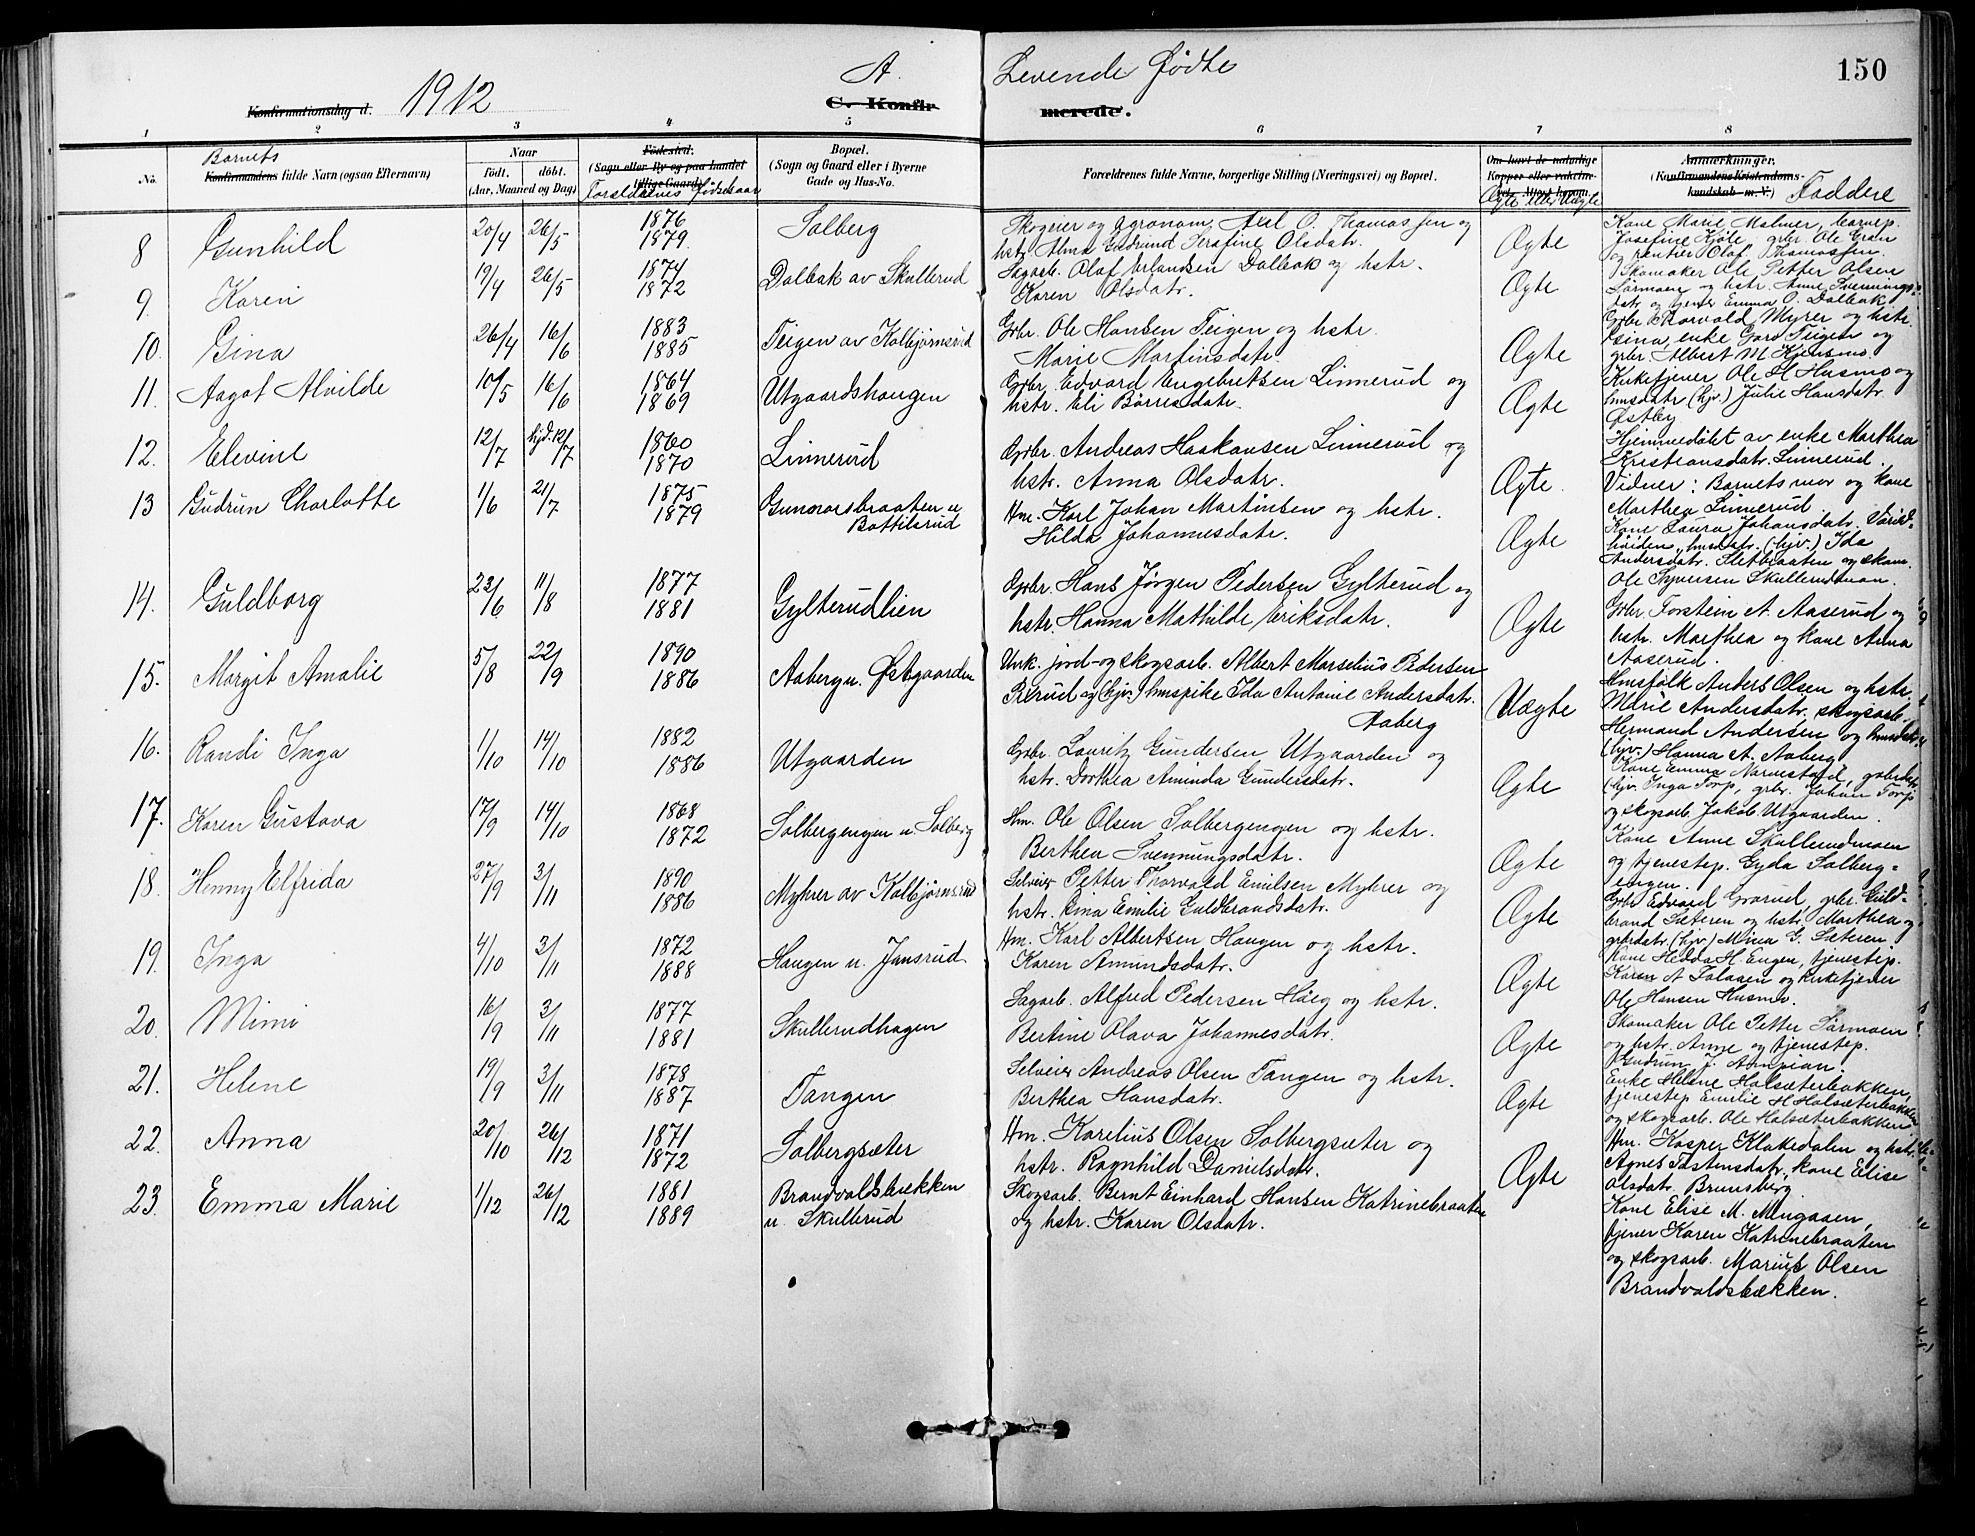 150
Konfirmationsdag d. 1912
A. Levende Fødte
C. Konfirmerede.
1 2 3 4 5 6 7 8
No.
Barnets
Konfirmandens fulde Navn (ogsaa Efternavn)
Naar
Født. døbt.
(Aar, Maaned og Dag)
Fødested.
(Sogn eller By og paa landet tillige Gaard)
Forældrenes Fødselsaar
Bopæl.
(Sogn og Gaard eller i Byerne
Gade og Hus-No.
Forældrenes fulde Navne, borgerlige Stilling (Næringsvei) og Bopæl.
Om havt de naturlige
Kopper eller vaksineret. Attest herom.
Ægte eller Uægte
Anmerkninger.
(Konfirmandens Kristendomskundskab m. V.)
Faddere
8 Gunhild 20/4 26/5 1876 1879 Solberg
Skogeier og agronom Axel O. Thomassen og
hstr. Alma Gudrund Serafine Olsdatr. Ægte
Kone Marie Malmer, barnep.
Josefine Kjøle, grbr. Ole Gran
og rentier Olaf Thomassen.
9. Karen 19/4 26/5 1874 1872 Dalbak av Skullerud
Sagarb. Olaf Erlandsen Dalbak og hstr.
Karen Olsdatr. Ægte
Skomaker Ole Petter Olsen
Sørmoen og hstr. Anne Svennings-
datr. og tjener Emma O. Dalbak
10. Gina 26/4 16/6 1883 1885 Teigen av Kolbjørnsrud
Grbr. Ole Hansen Teigen og hstr.
Marie Martinsdatr. Ægte
Grbr. Torvald Myrer og hstr.
Gina, enke Goro Teigen og
grbr. Albert M. Kjensmo.
11. Aagot Alvilde 10/5 16/6 1864 1869 Utgaardshaugen
Grbr. Edvard Engebretsen Linnerud og
hstr. Eli Børresdatr. Ægte
Kirketjener Ole H. Husmo og
hmsdatr. (hjv.) Julie Hansdatr.
Østby
12. Elevine 12/7 hjd. 12/7 1860 1870 Linnerud
Grbr. Andreas Haakonsen Linnerud og
hstr. Anna Olsdatr. Ægte.
Hjemmedøbt av enke Marthea
Kristiansdatr. Linnerud.
Vidner: Barnets mor og kone
Marthea Linnerud.
13 Gudrun Charlotte 1/6 21/7 1875 1879 Gunnarsbraaten u.
Bottilsrud
Hm. Karl Johan Martinsen og hstr.
Hilda Johannesdatr. Ægte
Kone Laura Johansdatr.
hmsdatr. (hjv.) Ida
Andersdatr. Sletbraaten og skom.
Ole Syversen Skullerudmoen.
14. Guldborg 23/6 11/8 1877 1881 Gylterudlien
Grbr. Hans Jørgen Pedersen Gylterud og
hstr. Hanna Mathilde Eriksdatr. Ægte
Grbr. Torstein A. Aaserud og
hstr. Marthea og kone Anna
Aaserud.
15. Margit Amalie 5/8 22/9 1890 1886 Aaberg u. Østgaarden
Unk. jord- og skogsarb. Albert Marselius Pedersen
Rerud og (hjv.) hmspike Ida Antonie Andersdatr.
Aaberg Uægte
Hmsfolk Anders Olsen og hstr.
Marie Andersdatr. skogsarb.
Hermand Andersen og hmsdatr.
(hjv.) Hanna A. Aaberg
16. Randi Inga 1/10 14/10 1882 1886 Utgaarden
Grbr. Lauritz Gundersen Utgaarden og
hstr. Dorthea Aminda Gundersdatr. Ægte
Kone Emma Narvestad, grbrdatr.
(hjv. Inga Torp, grbr. Johan Torp
og skogsarb. Jakob Utgaarden.
17. Karen Gustava 17/9 14/10 1868 1872 Solbergengen u. Solberg
Hm. Ole Olsen Solbergengen og hstr.
Berthea Svenningsdatr. Ægte
Kone Anne Skullerudmoen
og tjenestep. Gyda Solberg-
engen.
18. Henny Elfrida 27/9 3/11 1890 1886 Myhrer av Kolbjørnsrud
Selveier Petter Thorvald Emilsen Myhrer og
hstr. Gina Emilie Guldbrandsdatr. Ægte
Grbr. Edvard Grorud, grbr. Guld-
brand Sæteren og hstr. Marthea og
grbrdatr. (hjv.) Mina G. Sæteren
19. Inga 4/10 3/11 1872 1888 Haugen u. Jansrud
Hm. Karl Albertsen Haugen og hstr.
Karen Amundsdatr. Ægte
Kone Hedda H. Engen, tjenestep.
Karen A. og kirketjener
Ole Hansen Husmo.
20. Mimi 16/9 3/11 1877 1881 Skullerudhagen
Sagarb. Alfred Pedersen Høeg og hstr.
Bertine Olava Johannesdatr. Ægte
Skomaker Ole Petter Sørmoen
og hstr. Anne og tjenestep.
Gudrun J.
21. Helene 19/9 3/11 1878 1887 Tangen
Selveier Andreas Olsen Tangen og hstr.
Berthea Hansdatr. Ægte
Enke Helene Halsæterbakken,
tjenestep. Emilie H. Halsæterbakken
og skogsarb. Ole Halsæterbakken
22. Anna 20/10 26/12 1871 1872 Solbergsæter
Hm. Karelius Olsen Solbergsæter og
hstr. Ragnhild Danielsdatr. Ægte
Hm. Kasper Klokedalen og hstr.
Agnes Tostensdatr, kone Elise
Olsdatr. Brunsberg.
23. Emma Marie 1/12 26/12 1881 1889 Brandvoldsbækken
u. Skullerud
Skogsarb. Bernt Einhard Hansen Katrinebraaten
og hstr. Karen Olsdatr.
Kone Elise M. Mingaasen,
tjener Karen Katrinebraaten
og skogsarb. Marius Olsen
Brandvoldsbækken.